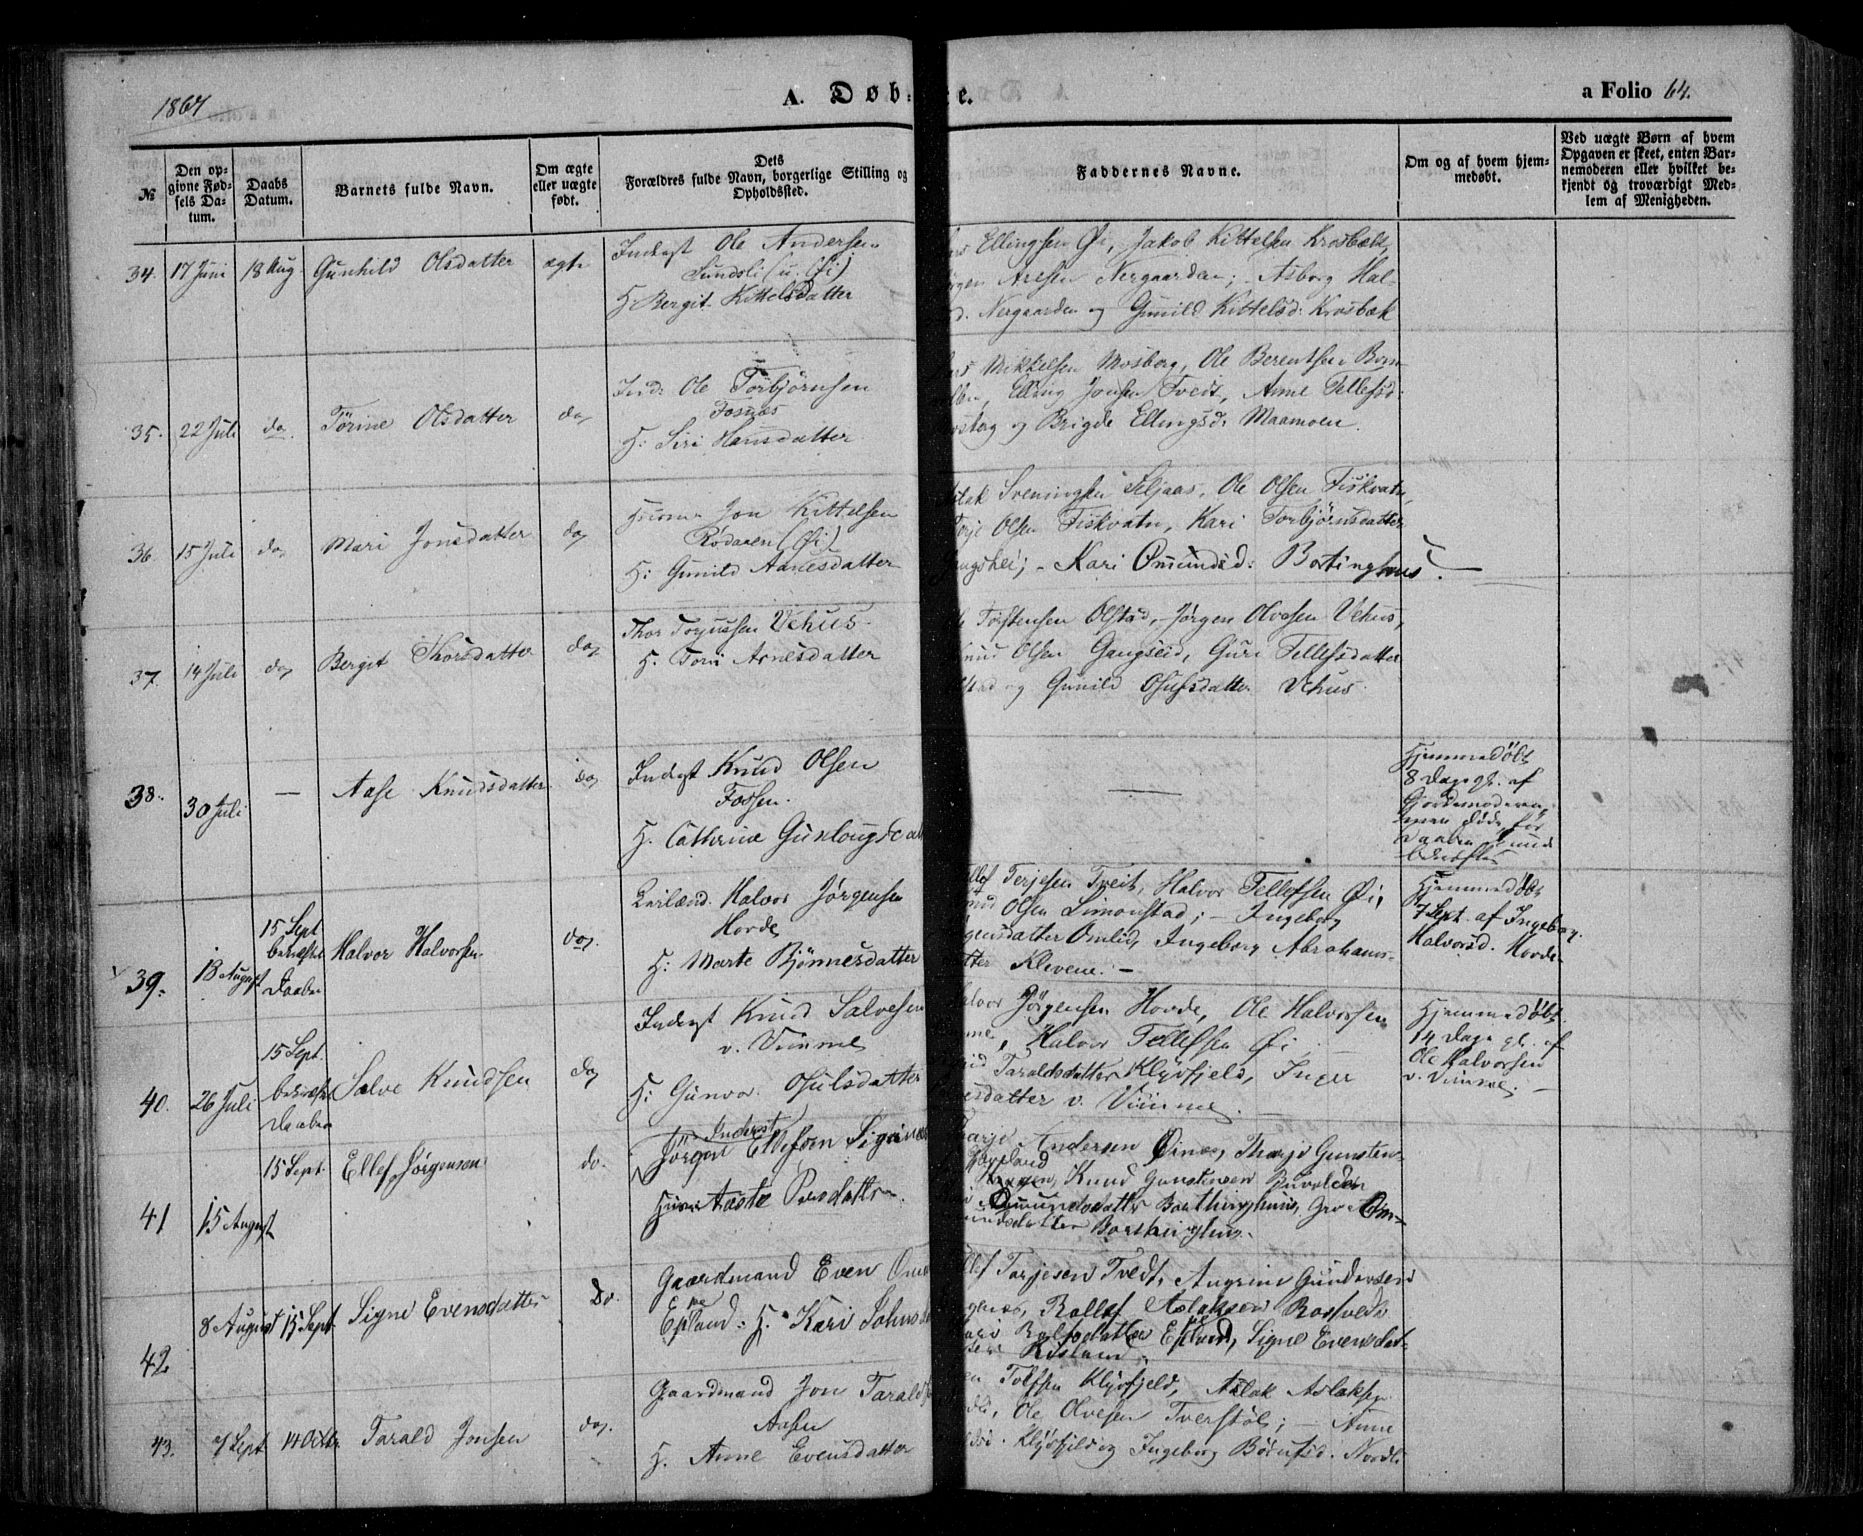 1867
A. Døb- e.
a Folio 64.
№
Den opgivne Fødsels Datum.
Daabs Datum.
Barnets fulde Navn.
Om ægte eller uægte født.
Dets Forældres fulde Navn, borgerlige Stilling og Opholdssted.
Faddernes Navne.
Om og af hvem hjemmedøbt.
Ved uægte Børn af hvem Opgaven er skeet, enten Barnemoderen eller hvilket bekjendt og troværdigt Medlem af Menigheden.
34. 17 Juni 18 Aug Gunhild Olsdatter ægte
Inderst Ole Andersen
Sundsli (u. Øi)
H Bergit Kittelsdatter
Ellingsen Øi, Jakob Kittelsen Krosbæk,
Aresen Nergaarden; Asborg Hal-
d. Nergaarden og Gunild Kittelsd: Krosbæk
35. 22 Juli do Törine Olsdatter do
Ind: Ole Torbjörnsen
Fosnæs
H: Siri Hansdatter
Mikkelsen Mosberg, Ole Berentsen Bom-
Elling Jonsen Tvedt, Anne Tellefsd:
og Brigde Ellingsd: Maamoen.
36. 15 Juli do Mari Jonsdatter do
Huusm. Jon Kittelsen
Rödaren (Øi)
H: Gunild Aanesdatter
Sveningsen Seljaas, Ole Olsen Fiskvatn,
Olsen Fiskvatn, Kari Torbjörnsdatter
- Kari Omundsd: Bortinghuus.
37. 14 Juli do Bergit Thorsdatter do
Thor Torjussen Vehus
H. Toni Arnesdatter
Torstensen Olstad, Jörgen Olvesen Vehus,
Olsen Gangseid, Guri Tellefsdatter
og Gunild Osulsdatter Vehus.
38. 30 Juli — Aase Knudsdatter do
Inderst Knud Olsen
Fossen.
H. Cathrine Gunlougsdat
—
Hjemmedöbt
8 Dage gl. af
Gjordemoderen,
39. 13 August 15 Sept. Daaben Halvor Halvorsen do.
Leilænd. Halvor Jörgensen
Hovde
H: Marte Bjönnesdatter
Terjesen Tveit, Halvor Tellefsen Øi,
Olsen Simonstad; – Ingeborg
Omlid, Ingeborg Abrahams-
Klevene. –
Hjemmedöbt
7 Sept. af Ingeborg
Halvorsd. Hovde
40. 26 Juli 15 Sept. Daaben Salve Knudsen do
Inderst Knud Salvesen
v. Vimme
H: Gunvor Osulsdatter
Jörgensen Hovde, Ole Halvorsen
Halvor Tellefsen Øi
Taraldsdatter Klyvfjeld, Inger
v. Vimme.
Hjemmedöbt
14 Dage gl. af
Ole Halvorsen
v. Vimme.
41 15 August 15 Sept. Ellef Jörgensen do.
Inderst
Jörgen Ellefsen
Aaste
Andersen Øinæs, Tharje Gunsten-
Knud Gunstensen
Omundsdatter Borthinghuus, Gro Om-
Borthinghuus.
42 8 August 15 Sept. Signe Evensdatter Do.
Gaardmand Even
Espeland. H. Kari
Tarjesen Tvedt, Gundersen
Rollef Aslaksen
Espeland, Signe Evensdat-
43. 7 Sept 14 Octbr Tarald Jonsen do.
Gaardmand Jon Tarald
Aasen
H. Anne Evensdatter
Klyvfjeld, Aslak Aslaksen
Ole Olvesen Tverstöl; – Anne
Klyvfjeld og Ingeborg Nordli